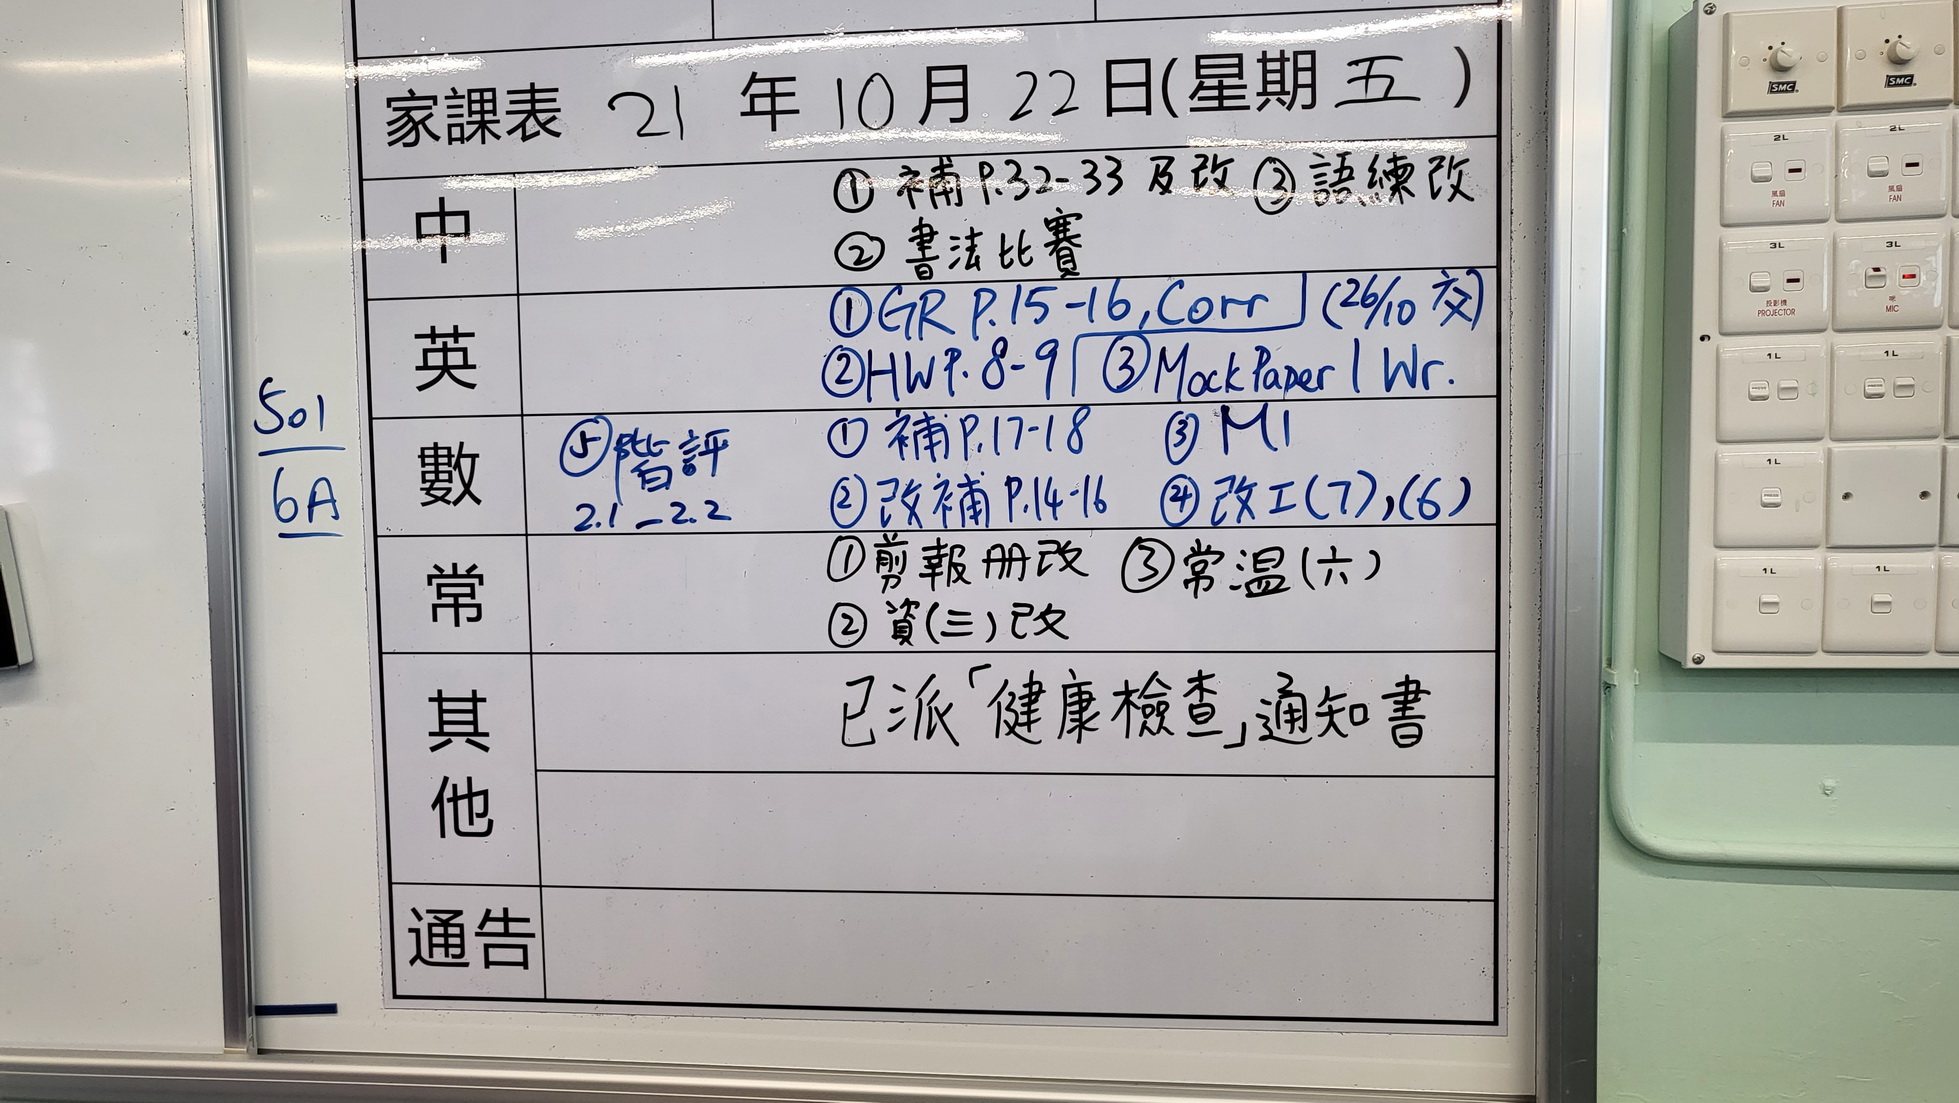 家課表 21 年 10 月 22 日(星期 五 )
中
① 補 P.32-33 及改 ③ 語練改
② 書法比賽
英
① GR P.15-16, Corr (26/10 交)
② HW P.8-9 ③ Mock Paper 1 Wr.
501
6A
數
⑤ 階評
2.1 - 2.2
① 補 P.17-18 ③ M1
② 改補 P.14-16 ④ 改工(7),(6)
常
① 剪報册改 ③ 常温(六)
② 資(三)改
其他
已派「健康檢查」通知書
通告
SMC SMC
2L 2L
風扇 風扇
FAN FAN
3L 3L
投影機 咪
PROJECTOR MIC
1L 1L
1L
PRESS
1L 1L